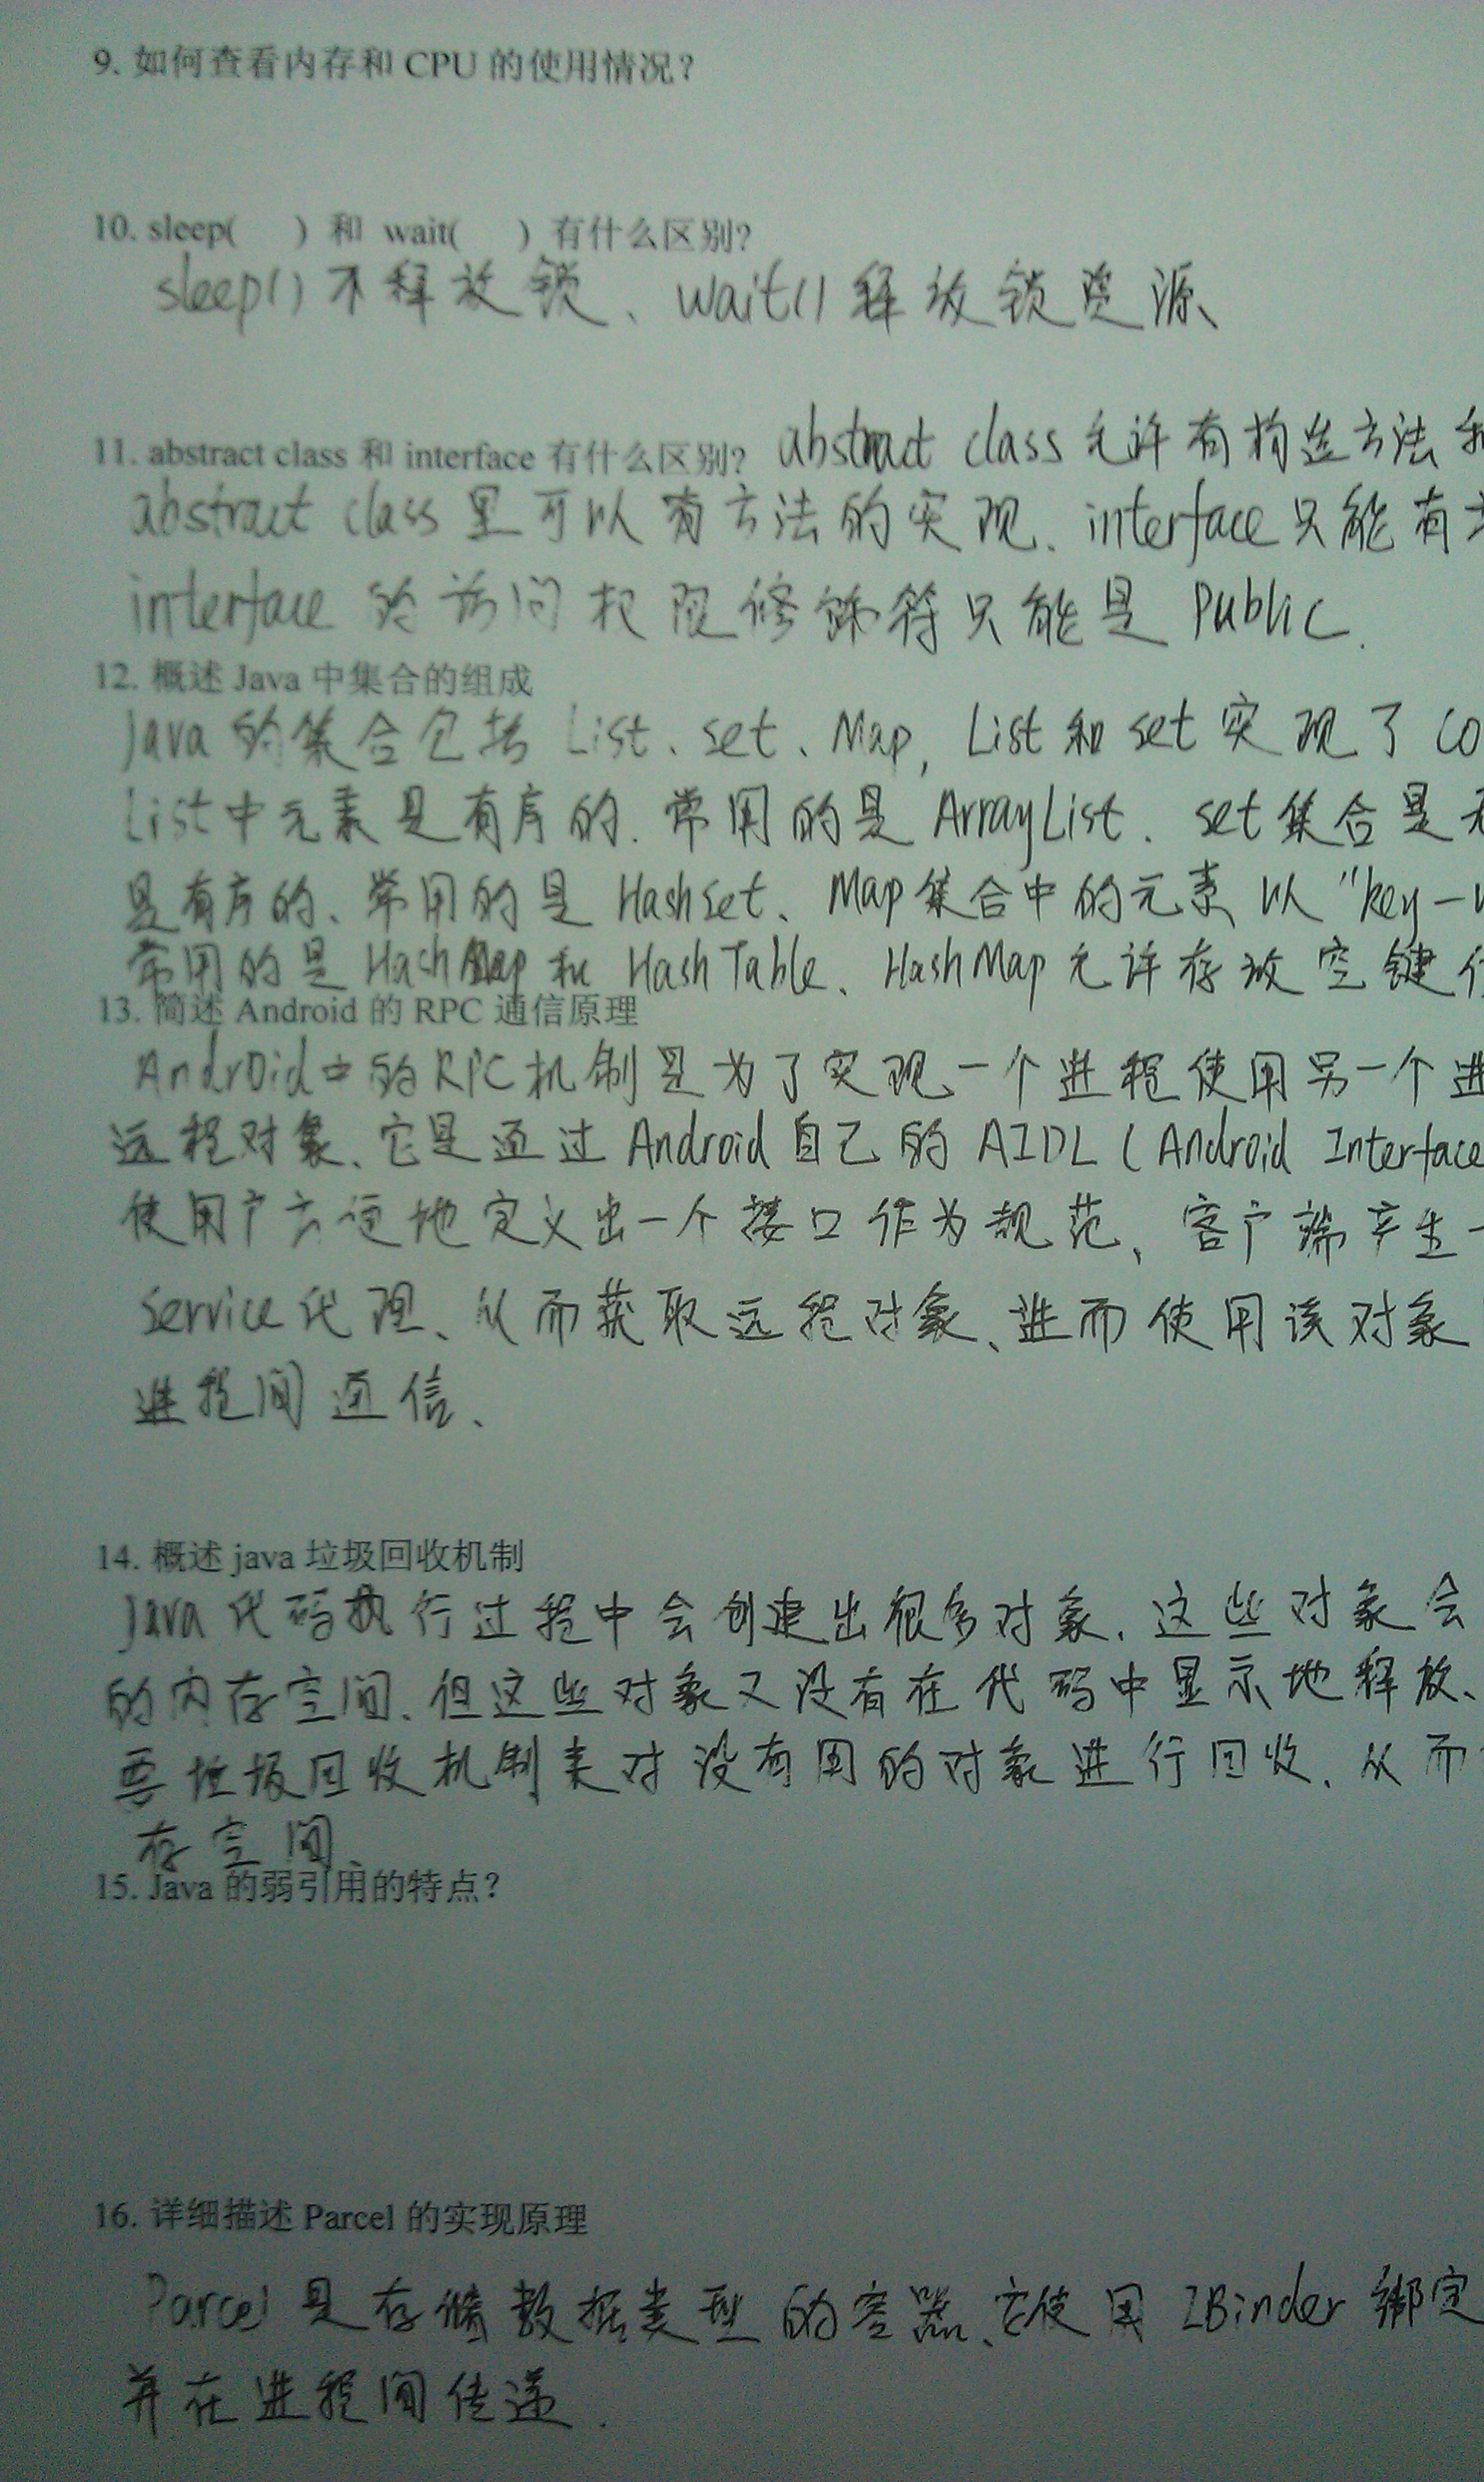 9. 如何查看内存和 CPU 的使用情况？
10. sleep( ) 和 wait( ) 有什么区别？
sleep()不释放锁、wait()释放锁资源、
11. abstract class 和 interface 有什么区别？ abstract class 允许有构造方法
abstract class 里可以有方法的实现. interface只能有
interface 的访问权限修饰符只能是 Public.
12. 概述 Java 中集合的组成
Java 的集合包括 List、set、Map, List和set实现了 Co
List中元素是有序的. 常用的是 ArrayList. set集合是
是有序的、常用的是 Hashset、Map集合中的元素以"key-v
常用的是 HashMap和 HashTable、HashMap允许存放空键
13. 简述 Android 的 RPC 通信原理
Android中的RPC机制是为了实现一个进程使用另一个进
远程对象、它是通过 Android自己的 AIDL (Android Interface
使用户方便地定义出一个接口作为规范、客户端产生一
Service代理、从而获取远程对象、进而使用该对象
进程间通信、
14. 概述 java 垃圾回收机制
Java代码执行过程中会创建出很多对象. 这些对象会
的内存空间. 但这些对象又没有在代码中显示地释放、
要垃圾回收机制来对没有用的对象进行回收. 从而
存空间.
15. Java 的弱引用的特点？
16. 详细描述 Parcel 的实现原理
Parcel是存储数据类型的容器、它使用 IBinder 绑定
并在进程间传递.